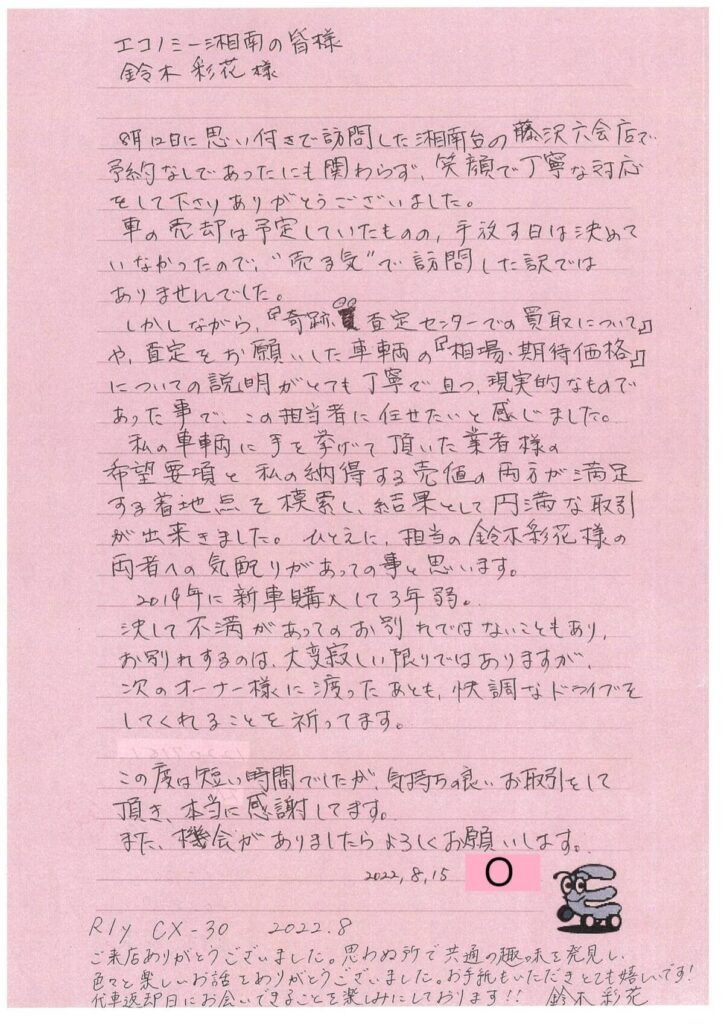 エコノミー湘南の皆様
鈴木彩花様
8月12日に思い付きで訪問した湘南台の藤沢六会店で
予約なしであったにも関わらず、笑顔で丁寧な対応
をして下さりありがとうございました。
車の売却は予定していたものの、手放す日は決めて
いなかったので、"売る気"で訪問した訳では
ありませんでした。
しかしながら、『奇跡 査定センターでの買取について』
や、査定をお願いした車輌の『相場・期待価格』
についての説明がとても丁寧で且つ、現実的なもので
あった事で、この担当者に任せたいと感じました。
私の車輌に手を挙げて頂いた業者様の
希望要項と私の納得する売値の両方が満足
する着地点を模索し、結果として円満な取引
が出来きました。ひとえに、担当の鈴木彩花様の
両者への気配りがあっての事と思います。
2019年に新車購入して3年弱。
決して不満があってのお別れではないこともあり、
お別れするのは、大変寂しい限りではありますが、
次のオーナー様に渡ったあとも、快調なドライブを
してくれることを祈ってます。
この度は短い時間でしたが、気持ちの良いお取引をして
頂き、本当に感謝してます。
また、機会がありましたらよろしくお願いします。
2022,8,15 O
R1y CX-30 2022.8
ご来店ありがとうございました。思わぬ所で共通の趣味を発見し、
色々と楽しいお話をありがとうございました。お手紙もいただきとても嬉しいです!
代車返却日にお会いできることを楽しみにしております!! 鈴木彩花